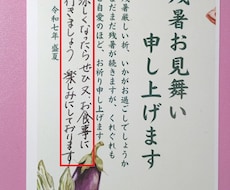 残暑お見舞い
申し上げます
残暑厳しい折、いかがお過ごしでしょうか
まだまだ残暑が続きますが、くれぐれも
ご自愛のほど、お祈り申し上げます
涼しくなったらぜひ又お食事に
行きましょう 楽しみにしております
令和七年 盛夏